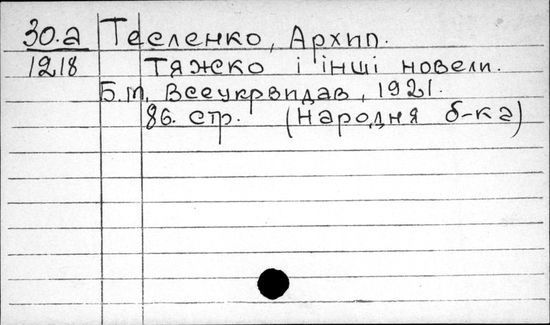 30.а Тесленко, Архип.
1218 Тяжко і інші новели.
Б.м, Всеукрвидав, 1921.
86. стр. (Народня б-ка)